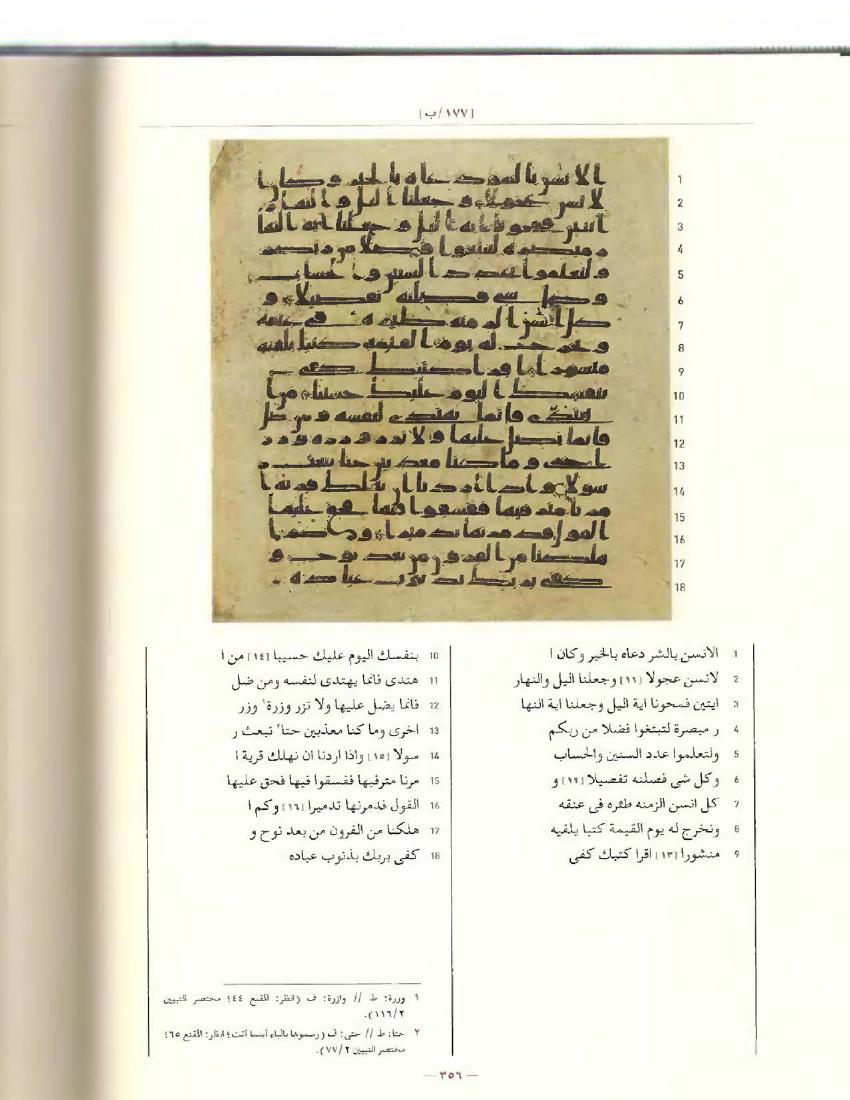 [١٧٧/ب]
1 الانسن بالشر دعاه بالخير وكان ا
2 لانسن عجولا [١١] وجعلنا اليل والنهار
3 ايتين فمحونا اية اليل وجعلنا اية النها
4 ر مبصرة لتبتغوا فضلا من ربكم
5 ولتعلموا عدد السنين والحساب
6 وكل شى فصلنه تفصيلا [١٢] و
7 كل انسن الزمنه طئره فى عنقه
8 ونخرج له يوم القيمة كتبا يلقيه
9 منشورا [١٣] اقرا كتبك كفى
10 بنفسك اليوم عليك حسيبا [١٤] من ا
11 هتدى فانما يهتدى لنفسه ومن ضل
12 فانما يضل عليها ولا تزر وزرة١ وزر
13 اخرى وما كنا معذبين حتا٢ نبعث ر
14 سولا [١٥] واذا اردنا ان نهلك قرية ا
15 مرنا مترفيها ففسقوا فيها فحق عليها
16 القول فدمرنها تدميرا [١٦] وكم ا
17 هلكنا من القرون من بعد نوح و
18 كفى بربك بذنوب عباده
١ وزرة: ط // وازرة: ف (انظر: المقنع ٤٤؛ مختصر التبيين
١١٦/٢).
٢ حتا: ط // حتى: ف (رسموها بالياء أينما أتت؛ انظر: المقنع ٦٥؛
مختصر التبيين ٧٧/٢).
— ٣٥٦ —